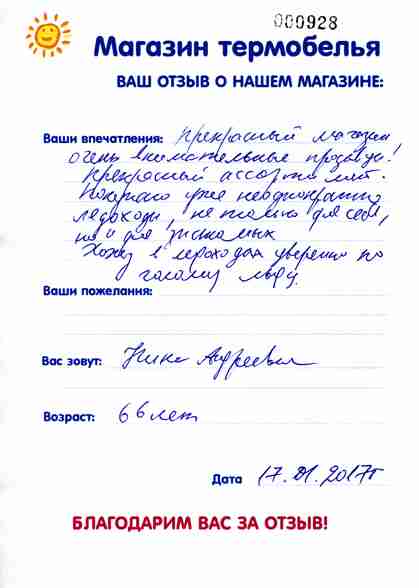 000928
Магазин термобелья
ВАШ ОТЗЫВ О НАШЕМ МАГАЗИНЕ:
Ваши впечатления: Прекрасный магазин
очень внимательные продавцы!
Прекрасный ассортимент.
Покупаю уже неоднократно
ледоходы, не только для себя,
но и для знакомых
Хожу в ледоходах уверенно по
голому льду.
Ваши пожелания:
Вас зовут: Нина Андреевна
Возраст: 66 лет
Дата 17.01.2017г
БЛАГОДАРИМ ВАС ЗА ОТЗЫВ!